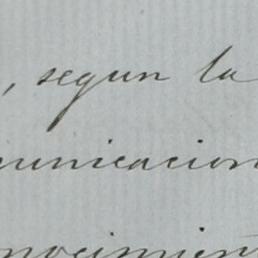 , segun la
municacion
nocimien